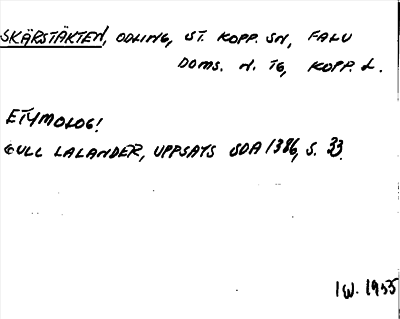 SKÄRSTÄKTEN, ODLING, ST. KOPP. SN, FALU
DOMS. N. TG, KOPP. L.
ETYMOLOG!
GULL LALANDER, UPPSATS SOA 1386, S. 33.
IW. 1955